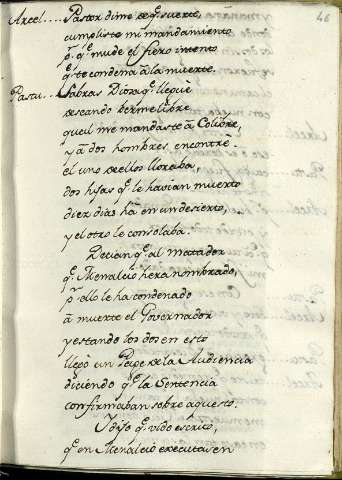 46
Arcel.... Pastor dime de q.e suerte
cumpliste mi mandamiento
p.a q.e mude el fiero intento
q.e te condena â la muerte.
Pastu... Sabras Diosa q.e lleguè
deseando verme libre
que fui me mandaste â Colibre,
y â dos hombres encontre.
el uno de ellos lloraba
dos hijas q.e le havian muerto
diez dias ha en un desierto,
y el otro le consolaba.
Decian q.e al matador
q.e Menalcio hera nombrado,
p.r ello le ha condenado
â muerte el Governador
y estando los dos en esto
llegò un Page de la Audiencia
diciendo q.e la Sentencia
confirmaban sobre aquesto.
I dijo q.e vido escrito,
q.e en Menalcio executasen